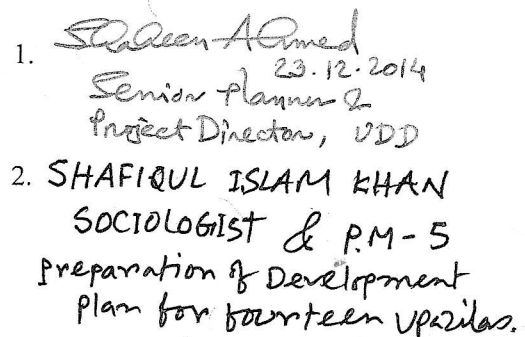 1. Shaheen Ahmed
23.12.2014
Senior Planner &
Project Director, UDD
2. SHAFIQUL ISLAM KHAN
SOCIOLOGIST & P.M-5
Preparation of Development
Plan for fourteen upazilas.